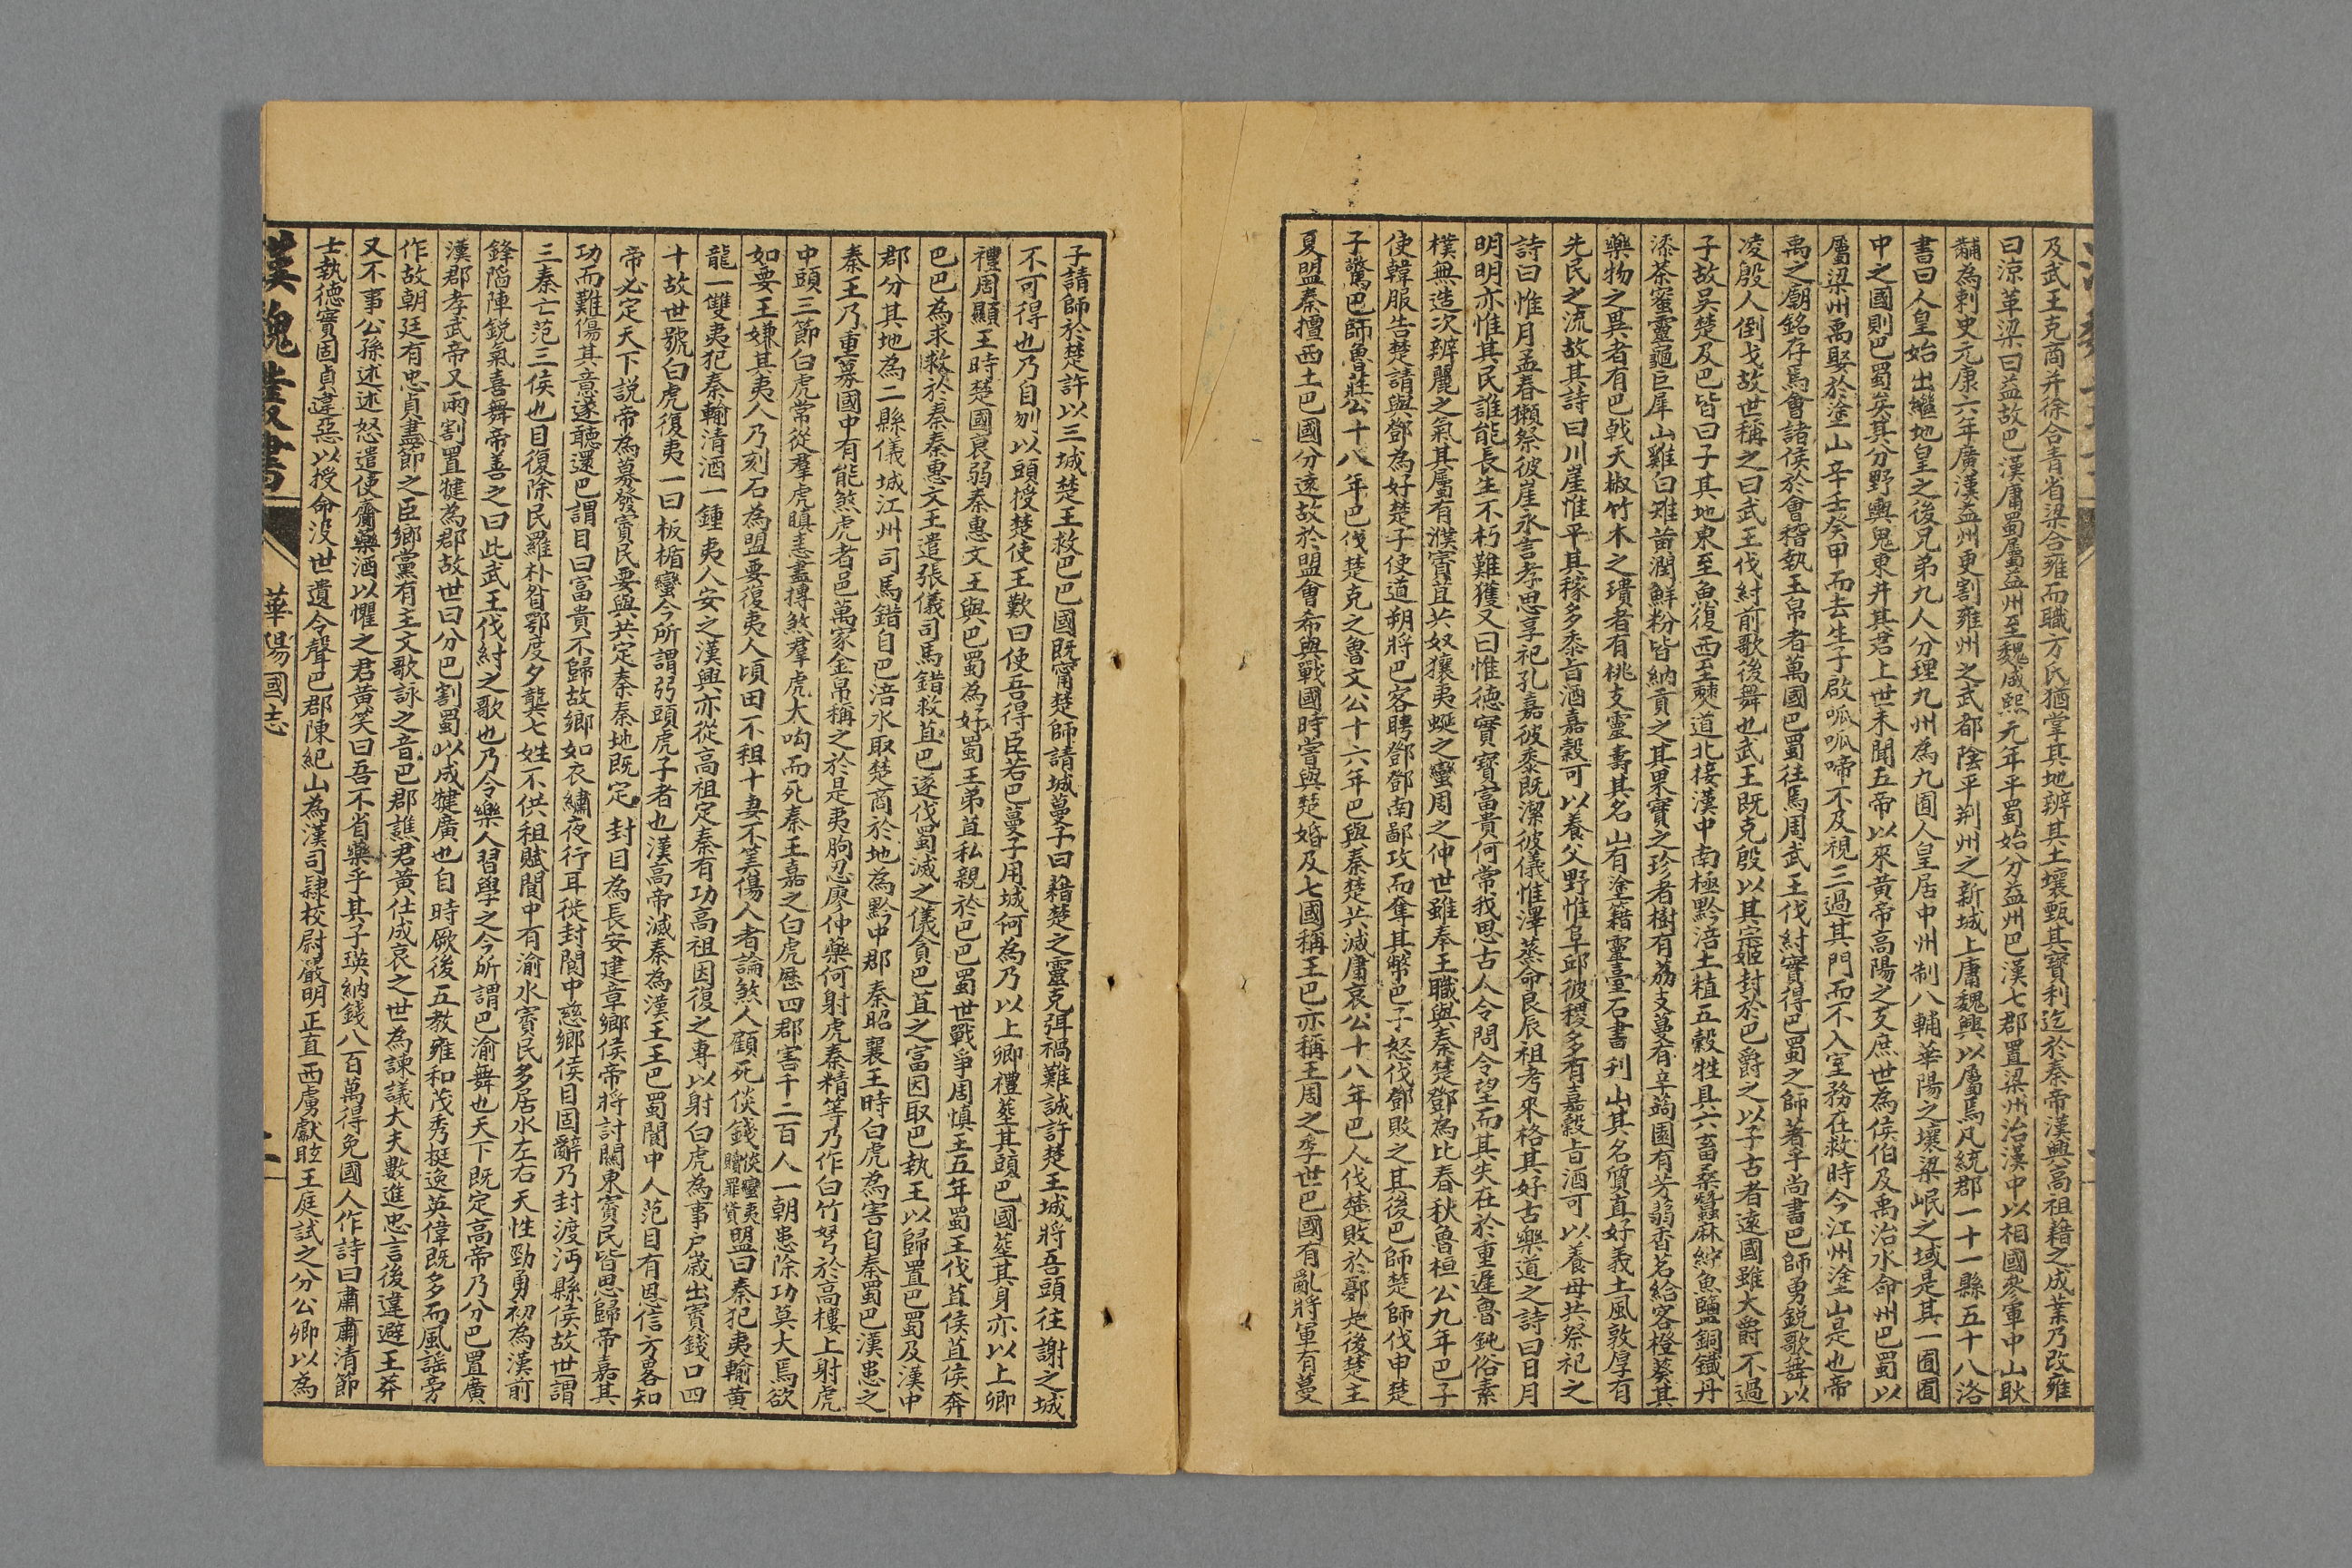 及武王克商并徐合青省梁合雍而職方氏猶掌其地辨其土壤甄其寳利迄於秦帝漢興高祖藉之成業乃改雍
曰涼革梁曰益故巴漢庸蜀屬益州至魏咸熙元年平蜀始分益州巴漢七郡置梁州治漢中以相國參軍中山耿
黼為刺史元康六年廣漢益州更割雍州之武都陰平荆州之新城上庸魏興以屬焉凡統郡一十一縣五十八洛
書曰人皇始出繼地皇之後兄弟九人分理九州為九囿人皇居中州制八輔華陽之壤梁岷之域是其一囿囿
中之國則巴蜀矣其分野輿鬼東井其君上世未聞五帝以來黄帝高陽之支庶世為侯伯及禹治水命州巴蜀以
屬梁州禹娶於塗山辛壬癸甲而去生子啟呱呱啼不及視三過其門而不入室務在救時今江州塗山是也帝
禹之廟銘存焉會諸侯於會稽執玉帛者萬國巴蜀往焉周武王伐紂實得巴蜀之師著乎尚書巴師勇鋭歌舞以
凌殷人倒戈故世稱之曰武王伐紂前歌後舞也武王既克殷以其宗姬封於巴爵之以子古者遠國雖大爵不過
子故吳楚及巴皆曰子其地東至魚復西至僰道北接漢中南極黔涪土植五穀牲具六畜桑蠶麻紵魚鹽銅鐵丹
漆茶蜜靈龜巨犀山雞白雉黄潤鮮粉皆納貢之其果實之珍者樹有荔支蔓有辛蒟園有芳蒻香茗給客橙葵其
藥物之異者有巴戟天椒竹木之璝者有桃支靈壽其名山有塗籍靈臺石書刊山其名質直好義土風敦厚有
先民之流故其詩曰川崖惟平其稼多黍旨酒嘉穀可以養父野惟阜邱彼稷多有嘉穀旨酒可以養母其祭祀之
詩曰惟月孟春獺祭彼崖永言孝思享祀孔嘉彼黍既潔彼儀惟澤蒸命良辰祖考來格其好古樂道之詩曰日月
明明亦惟其民誰能長生不朽難獲又曰惟德實寳富貴何常我思古人令問令望而其失在於重遲魯鈍俗素
樸無造次辨麗之氣其屬有濮賨苴共奴獽夷蜑之蠻周之仲世雖奉王職與秦楚鄧為比春秋魯桓公九年巴子
使韓服告楚請與鄧為好楚子使道朔將巴客聘鄧鄧南鄙攻而奪其幣巴子怒伐鄧敗之其後巴師楚師伐申楚
子驚巴師魯莊公十八年巴伐楚克之魯文公十六年巴與秦楚共滅庸哀公十八年巴人伐楚敗於鄾是後楚主
夏盟秦擅西土巴國分遠故於盟會希與戰國時嘗與楚婚及七國稱王巴亦稱王周之季世巴國有亂將軍有蔓
子請師於楚許以三城楚王救巴巴國既甯楚師請城蔓子曰藉楚之靈克弭禍難誠許楚王城將吾頭往謝之城
不可得也乃自刎以頭授楚使王歎曰使吾得臣若巴蔓子用城何為乃以上卿禮葬其頭巴國葬其身亦以上卿
禮周顯王時楚國衰弱秦惠文王與巴蜀為好蜀王弟苴私親於巴巴蜀世戰爭周慎王五年蜀王伐苴侯苴侯奔
巴巴為求救於秦秦惠文王遣張儀司馬錯救苴巴遂伐蜀滅之儀貪巴苴之富因取巴執王以歸置巴蜀及漢中
郡分其地為二縣儀城江州司馬錯自巴涪水取楚商於地為黔中郡秦昭襄王時白虎為害自秦蜀巴漢患之
秦王乃重募國中有能煞虎者邑萬家金帛稱之於是夷朐忍廖仲藥何射虎秦精等乃作白竹弩於高樓上射虎
中頭三節白虎常從羣虎瞋恚盡搏煞羣虎大呴而死秦王嘉之曰虎歷四郡害千二百人一朝患除功莫大焉欲
如要王嫌其夷人乃刻石為盟要復夷人頃田不租十妻不筭傷人者論煞人顧死倓錢倓蠻夷贖罪貨盟曰秦犯夷輸黄
龍一雙夷犯秦輸清酒一鍾夷人安之漢興亦從高祖定秦有功高祖因復之專以射白虎為事户歲出賨錢口四
十故世號白虎復夷一曰板楯蠻今所謂弜頭虎子者也漢高帝滅秦為漢王王巴蜀閬中人范目有恩信方畧知
帝必定天下説帝為募發賨民要與共定秦秦地既定封目為長安建章鄉侯帝將討關東賨民皆思歸帝嘉其
功而難傷其意遂聽還巴謂目曰富貴不歸故鄉如衣繡夜行耳徙封閬中慈鄉侯目固辭乃封渡沔縣侯故世謂
三秦亡范三侯也目復除民羅朴昝鄂度夕龔七姓不供租賦閬中有渝水賨民多居水左右天性勁勇初為漢前
鋒陷陣鋭氣喜舞帝善之曰此武王伐紂之歌也乃令樂人習學之今所謂巴渝舞也天下既定高帝乃分巴置廣
漢郡孝武帝又兩割置犍為郡故世曰分巴割蜀以成犍廣也自時厥後五教雍和茂秀挺逸英偉既多而風謡旁
作故朝廷有忠貞盡節之臣鄉黨有主文歌詠之音巴郡譙君黄仕成哀之世為諫議大夫數進忠言後違避王莽
又不事公孫述述怒遣使齎藥酒以懼之君黄笑曰吾不省藥乎其子瑛納錢八百萬得免國人作詩曰肅肅清節
士執德實固貞違惡以授命没世遺令聲巴郡陳紀山為漢司隸校尉嚴明正直西虜獻眩王庭試之分公卿以為
漢魏叢書 華陽國志 二